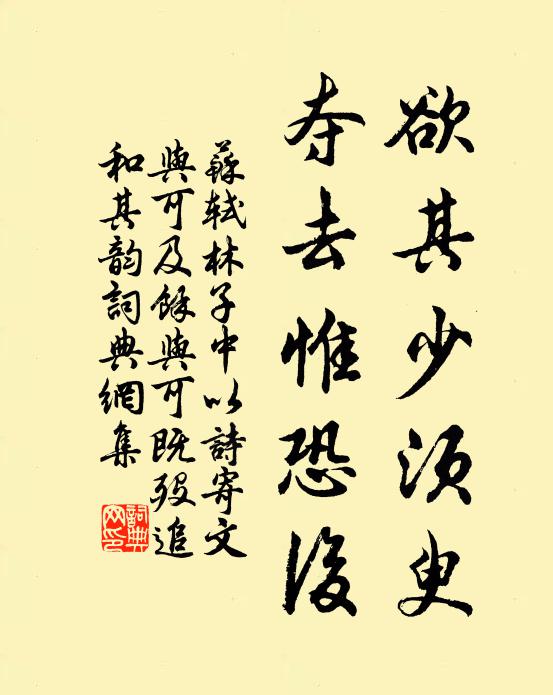 欲其少須臾
夺去惟恐後
蘇軾林子中以詩寄文
與可及餘與可既歿追
和其韵詞典網集
詞典
网印